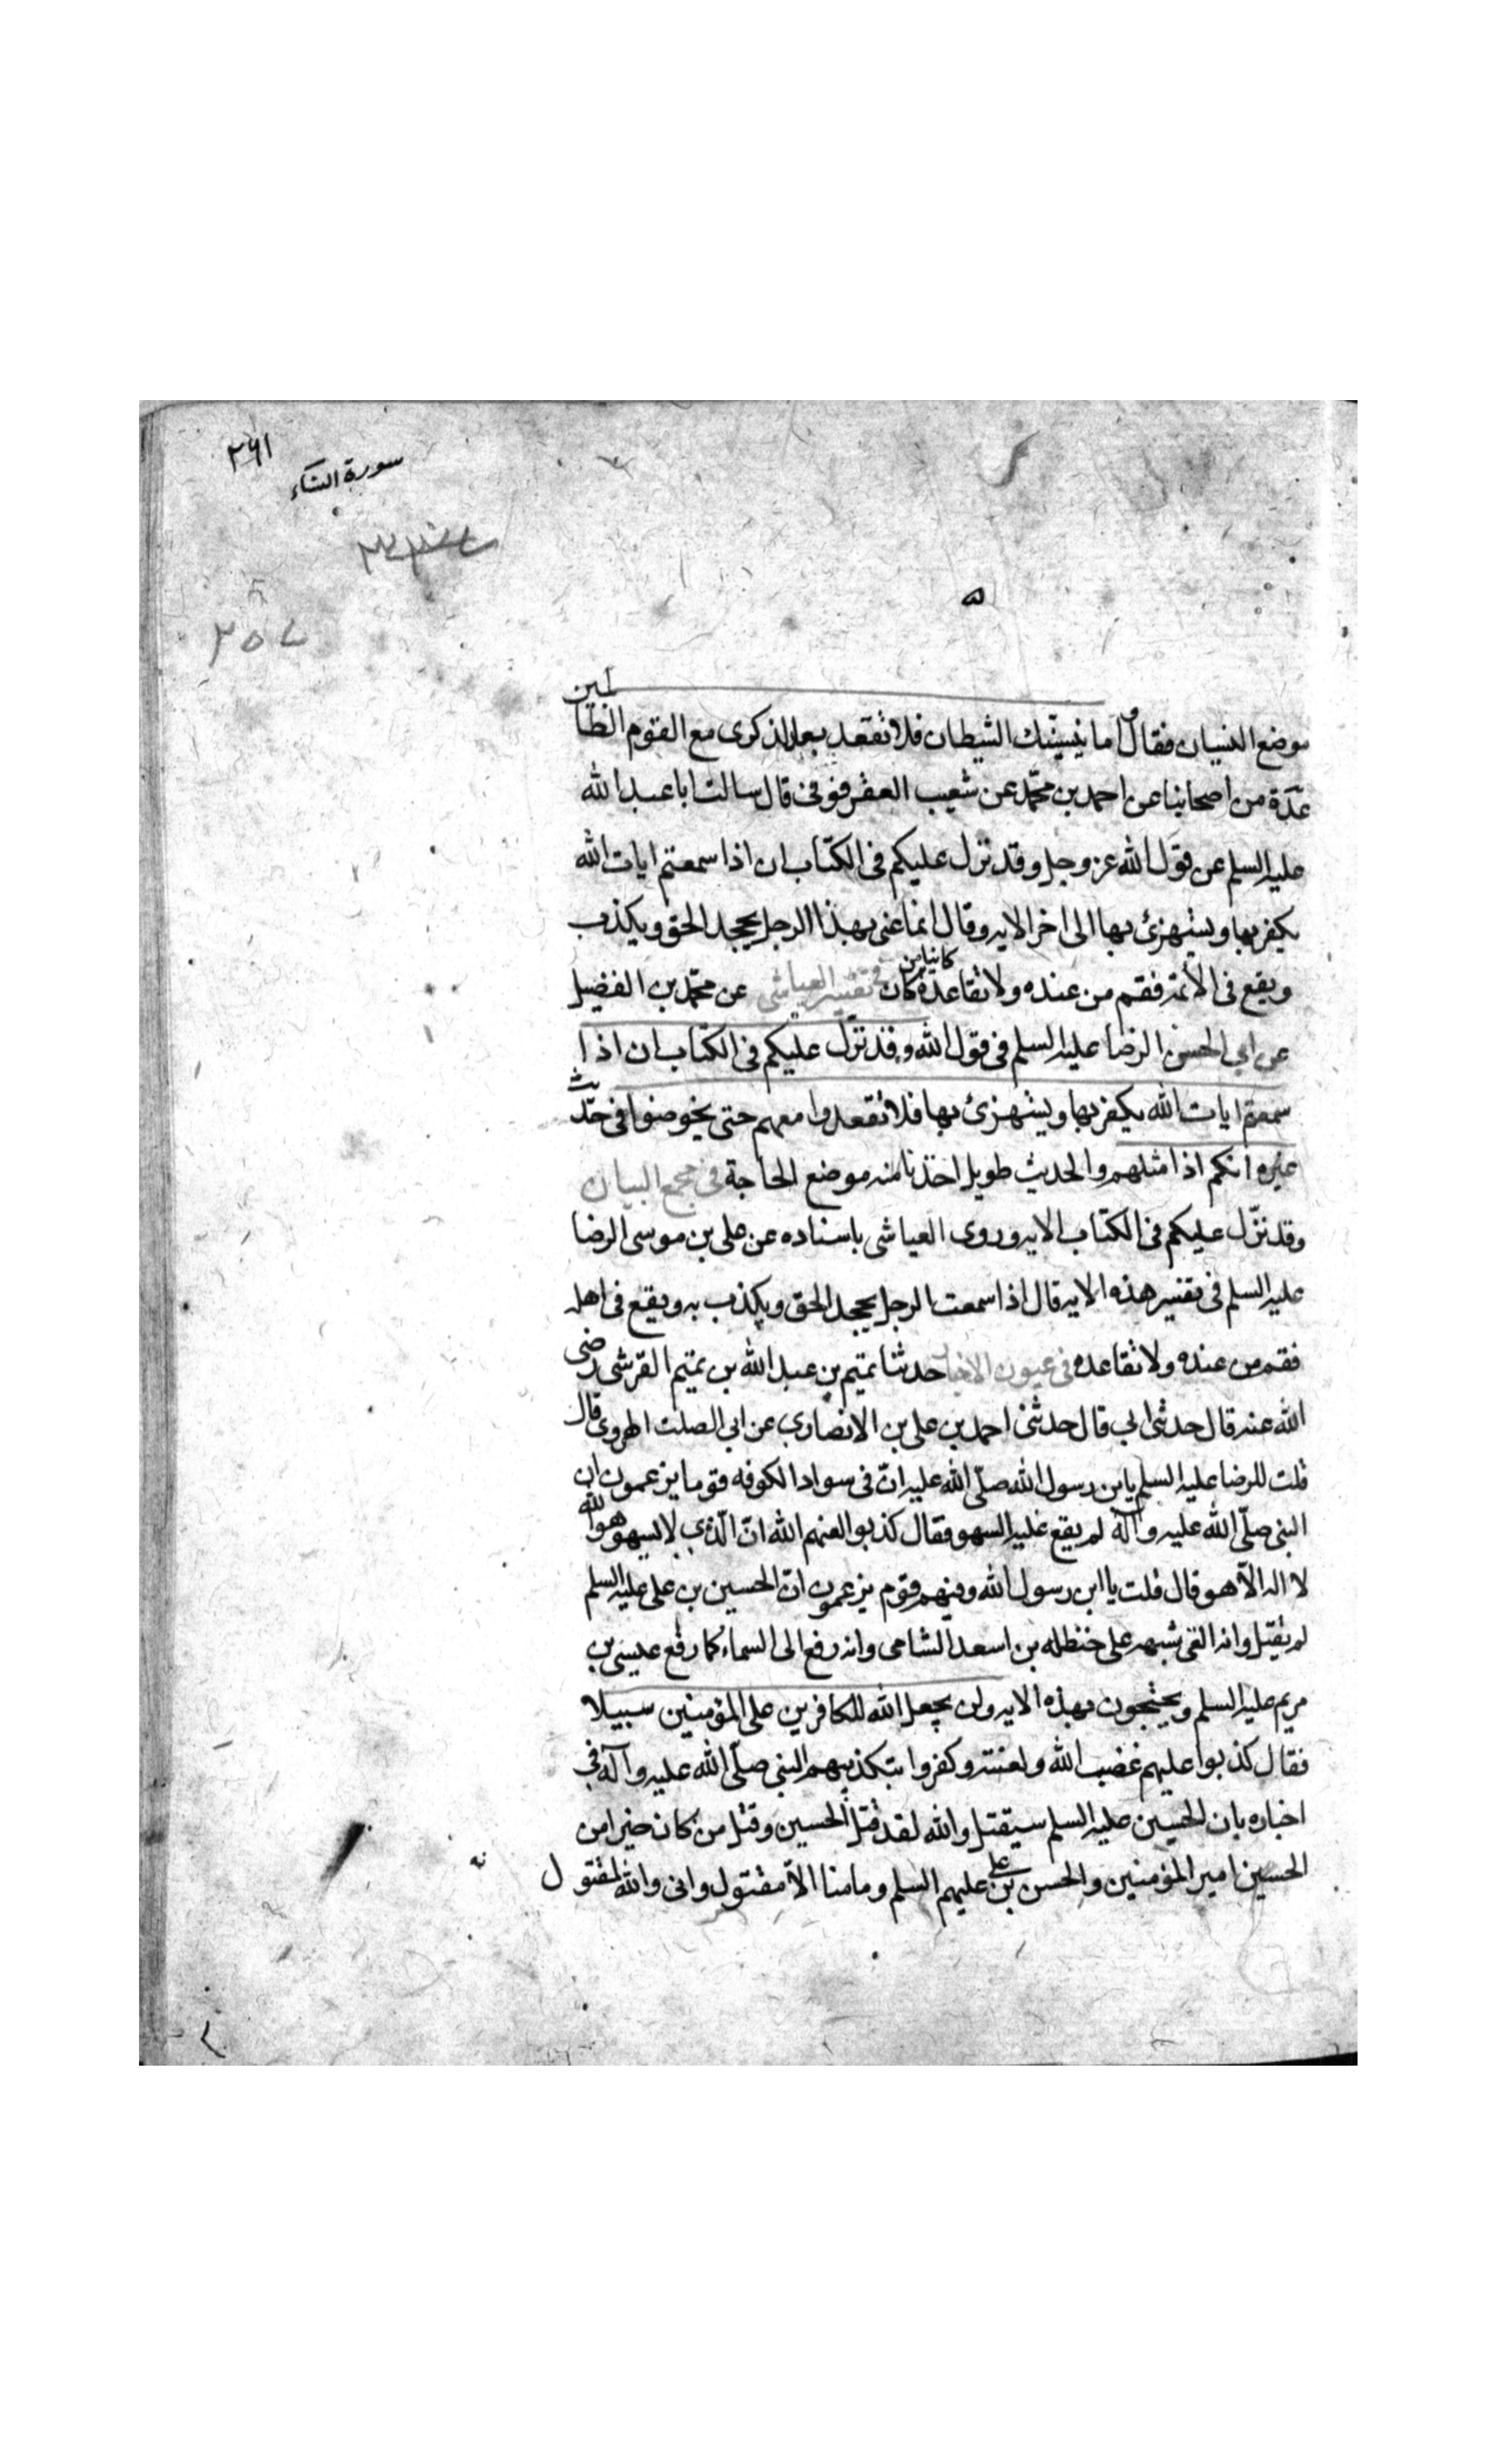 ٢٩١
سورة النساء
٢٥٧
موضع النسيان فقال واما ينسينك الشيطان فلا تقعد بعد الذكرى مع القوم الظالمين
عدّة من اصحابنا عن احمد بن محمّد عن شعيب العقرقوفى قال سالت ابا عبد الله
عليه السلم عن قول الله عز وجل وقد نزل عليكم فى الكتاب ان اذا سمعتم ايات الله
يكفر بها ويستهزئ بها الى اخر الايه وقال انما عنى بهذا الرجل يجحد الحق ويكذب
ويقع فى الائمه فقم من عنده ولا تقاعده كائنا من كان فى تفسير العياشى عن محمّد بن الفضيل
عن ابى الحسن الرضا عليه السلم فى قول الله وقد نزّل عليكم فى الكتاب ان اذا
سمعتم ايات الله يكفر بها ويستهزئ بها فلا تقعدوا معهم حتى يخوضوا فى حديث
غيره انكم اذا مثلهم والحديث طويل اخذنا منه موضع الحاجة فى مجمع البيان
وقد نزّل عليكم فى الكتاب الايه وروى العياشى باسناده عن على بن موسى الرضا
عليه السلم فى تفسير هذه الايه قال اذا سمعت الرجل يجحد الحق ويكذب به ويقع فى اهله
فقم من عنده ولا تقاعده فى عيون الاخبار حدثنا تميم بن عبد الله بن تميم القرشى رضى
الله عنه قال حدثنى ابى قال حدثنى احمد بن على بن الانصارى عن ابى الصلت الهروى قال
قلت للرضا عليه السلم يابن رسول الله صلّى الله عليه انّ فى سواد الكوفه قوما يزعمون ان
النبى صلّى الله عليه وآله لم يقع عليه السهو فقال كذبوا لعنهم الله انّ الّذى لا يسهو هو الله
لا اله الاّ هو قال قلت يا ابن رسول الله وفيهم قوم يزعمون انّ الحسين بن على عليه السلم
لم يقتل وانه القى شبهه على حنظله بن اسعد الشامى وانه رفع الى السماء كما رفع عيسى بن
مريم عليه السلم ويحتجون بهذه الايه ولن يجعل الله للكافرين على المؤمنين سبيلا
فقال كذبوا عليهم غضب الله ولعنته وكفروا بتكذيبهم النبى صلّى الله عليه وآله فى
اخباره بان الحسين عليه السلم سيقتل والله لقد قتل الحسين وقتل من كان خيرا من
الحسين امير المؤمنين والحسن بن على عليهم السلم وما منا الاّ مقتول وانى والله لمقتول